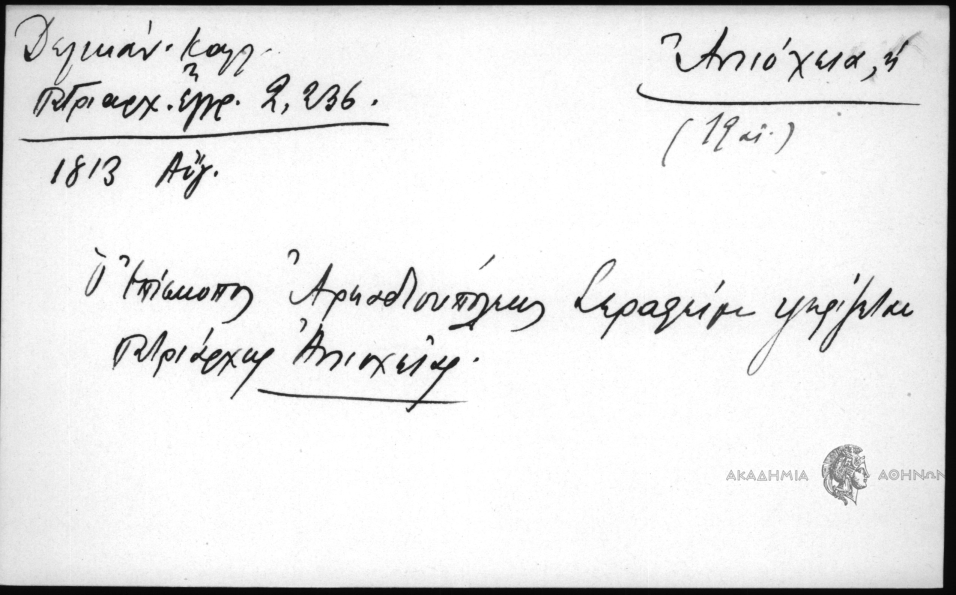 Δελικάν. Καλλ.
Πατριαρχ. Ἔγγρ. 2, 236.
Ἀντιόχεια, ἡ
(19 αἰ.)
1813 Αὔγ.
Ὁ Ἐπίσκοπος Ἀρκαδιουπόλεως Σεραφείμ ψηφίζεται
Πατριάρχης Ἀντιοχείας.
ΑΚΑΔΗΜΙΑ ΑΘΗΝΩΝ